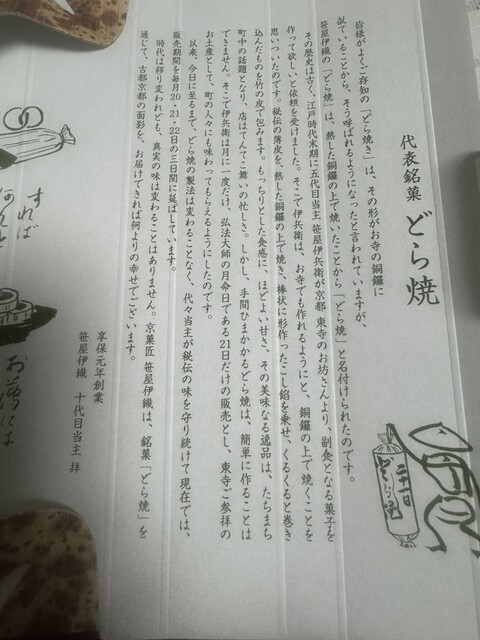 代表銘菓 どら焼
皆様がよくご存知の「どら焼き」は、その形がお寺の銅鑼に
似ていることから、そう呼ばれるようになったと言われていますが、
笹屋伊織の「どら焼」は、熱した銅鑼の上で焼いたことから「どら焼」と名付けられたのです。
その歴史は古く、江戸時代末期に五代目当主 笹屋伊兵衛が京都 東寺のお坊さんより、副食となる菓子を
作って欲しいと依頼を受けました。そこで伊兵衛は、お寺でも作れるようにと、銅鑼の上で焼くことを
思いついたのです。秘伝の薄皮を、熱した銅鑼の上で焼き、棒状に形作ったこし餡を乗せ、くるくると巻き
込んだものを竹の皮で包みます。もっちりとした食感に、ほどよい甘さ、その美味なる逸品は、たちまち
町中の話題となり、店はてんてこ舞いの忙しさ。しかし、手間ひまかかるどら焼は、簡単に作ることは
できません。そこで伊兵衛は月に一度だけ、弘法大師の月命日である21日だけの販売とし、東寺ご参拝の
お土産として、町の人々にも味わってもらえるようにしたのです。
以来、今日に至るまで、どら焼の製法は変わることなく、代々当主が秘伝の味を守り続けて現在では、
販売期間を毎月20・21・22日の三日間に延ばしています。
時代は移り変われども、真実の味は変わることはありません。京菓匠 笹屋伊織は、銘菓「どら焼」を
通じて、古都京都の面影を、お届けできれば何よりの幸せでございます。
享保元年創業
笹屋伊織 十代目当主 拝
二十一日
どら焼
すれば